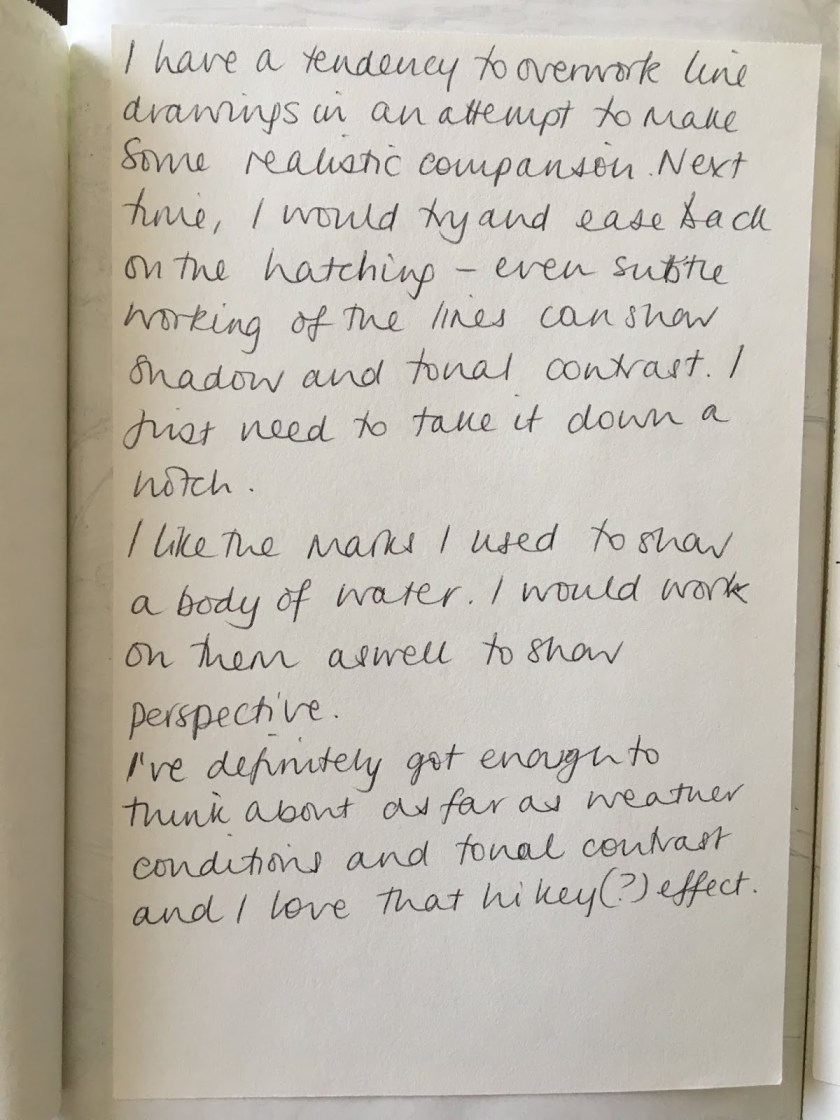 I have a tendency to overwork line
drawings in an attempt to make
some realistic comparison. Next
time, I would try and ease back
on the hatching – even subtle
working of the lines can show
shadow and tonal contrast. I
just need to take it down a
notch.
I like the marks I used to show
a body of water. I would work
on them aswell to show
perspective.
I've definitely got enough to
think about as far as weather
conditions and tonal contrast
and I love that hi key(?) effect.